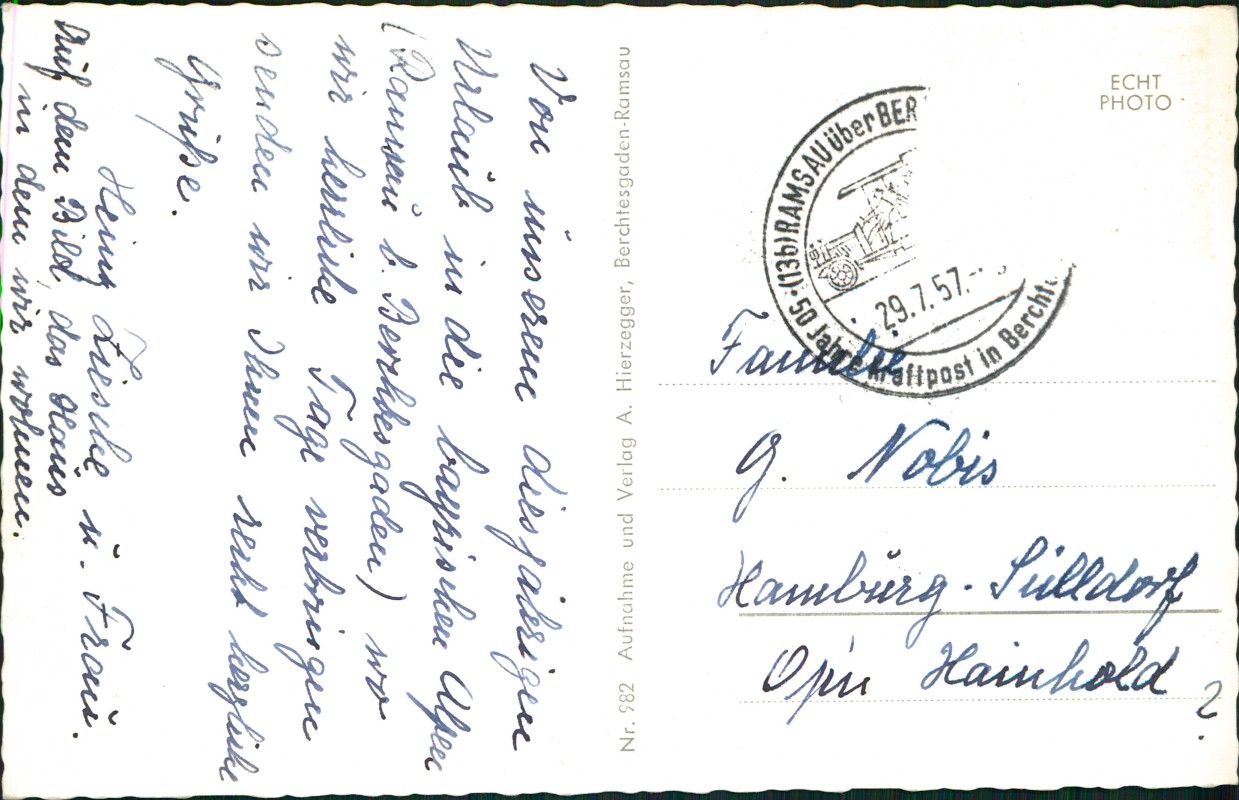 Von unserem diesjährigen
Urlaub in die bayrischen Alpen
(Ramsau b. Berchtesgaden) wo
wir herrliche Tage verbringen
senden wir Ihnen recht herzliche
Grüße.
Heinz u. Frau.
Auf dem Bild, das Haus
in dem wir wohnen.
Nr. 982 Aufnahme und Verlag A. Hierzegger, Berchtesgaden-Ramsau
ECHT
PHOTO
(13b) RAMSAU über BER
29.7.57.
50 Jahre Kraftpost in Bercht
Familie
G. Nobis
Hamburg-Sülldorf
Op'n Hainholt
2